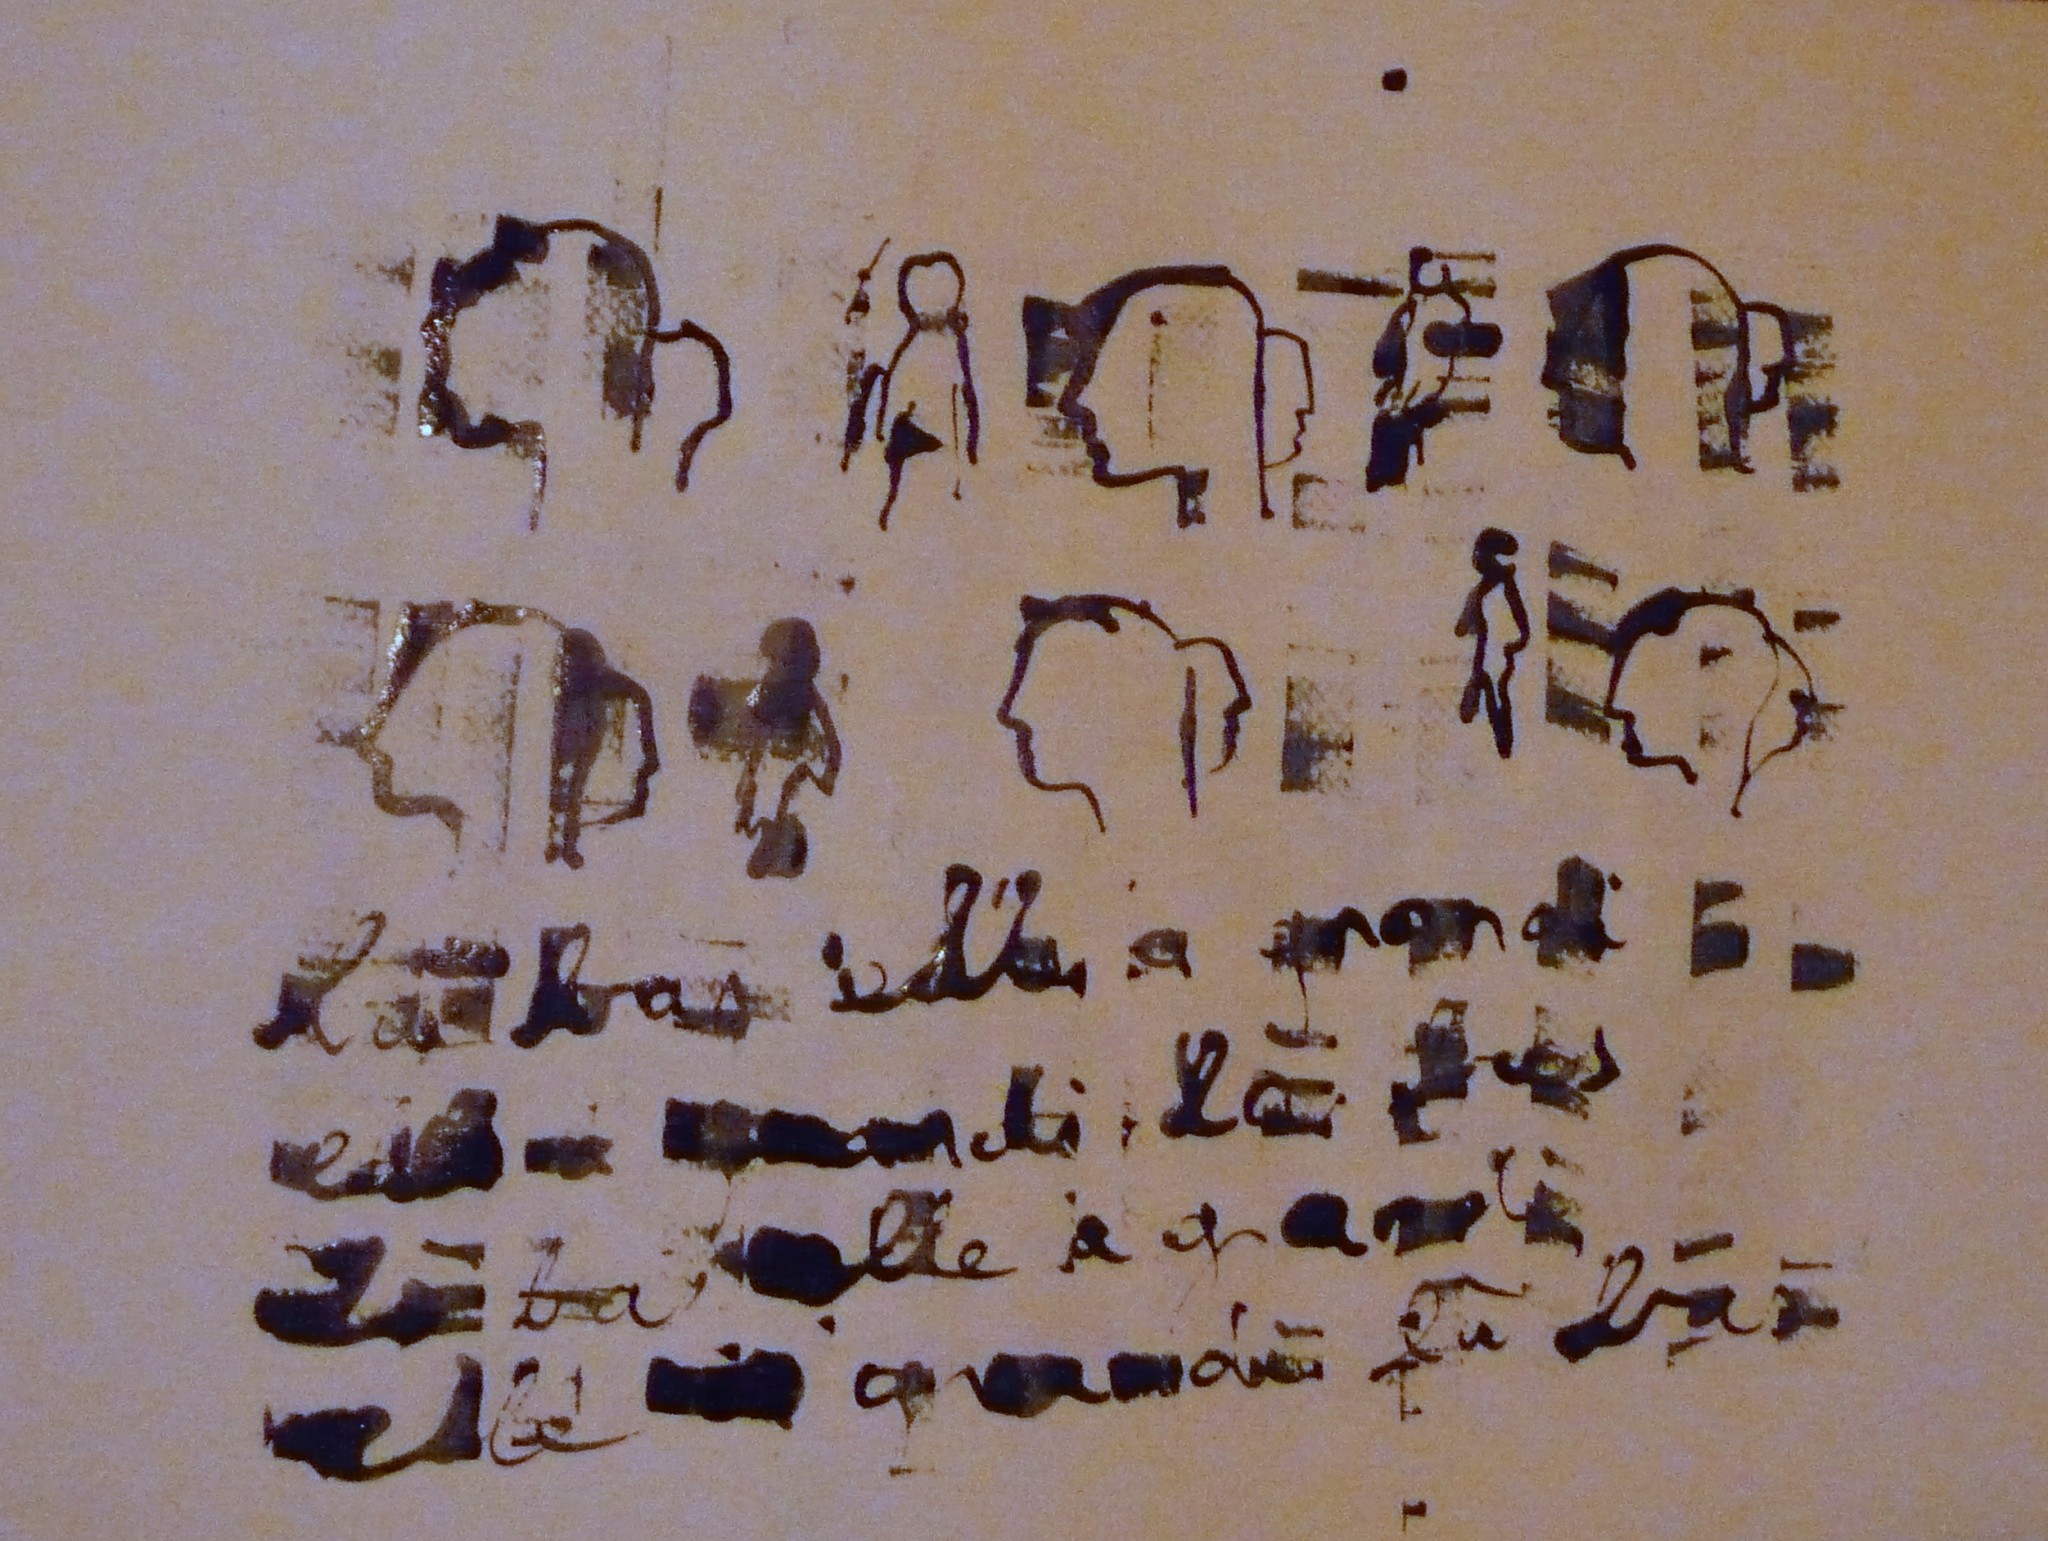 Là bas elle a grandi
elle a grandi. Là bas
Là bas elle a grandi
elle a grandi là bas